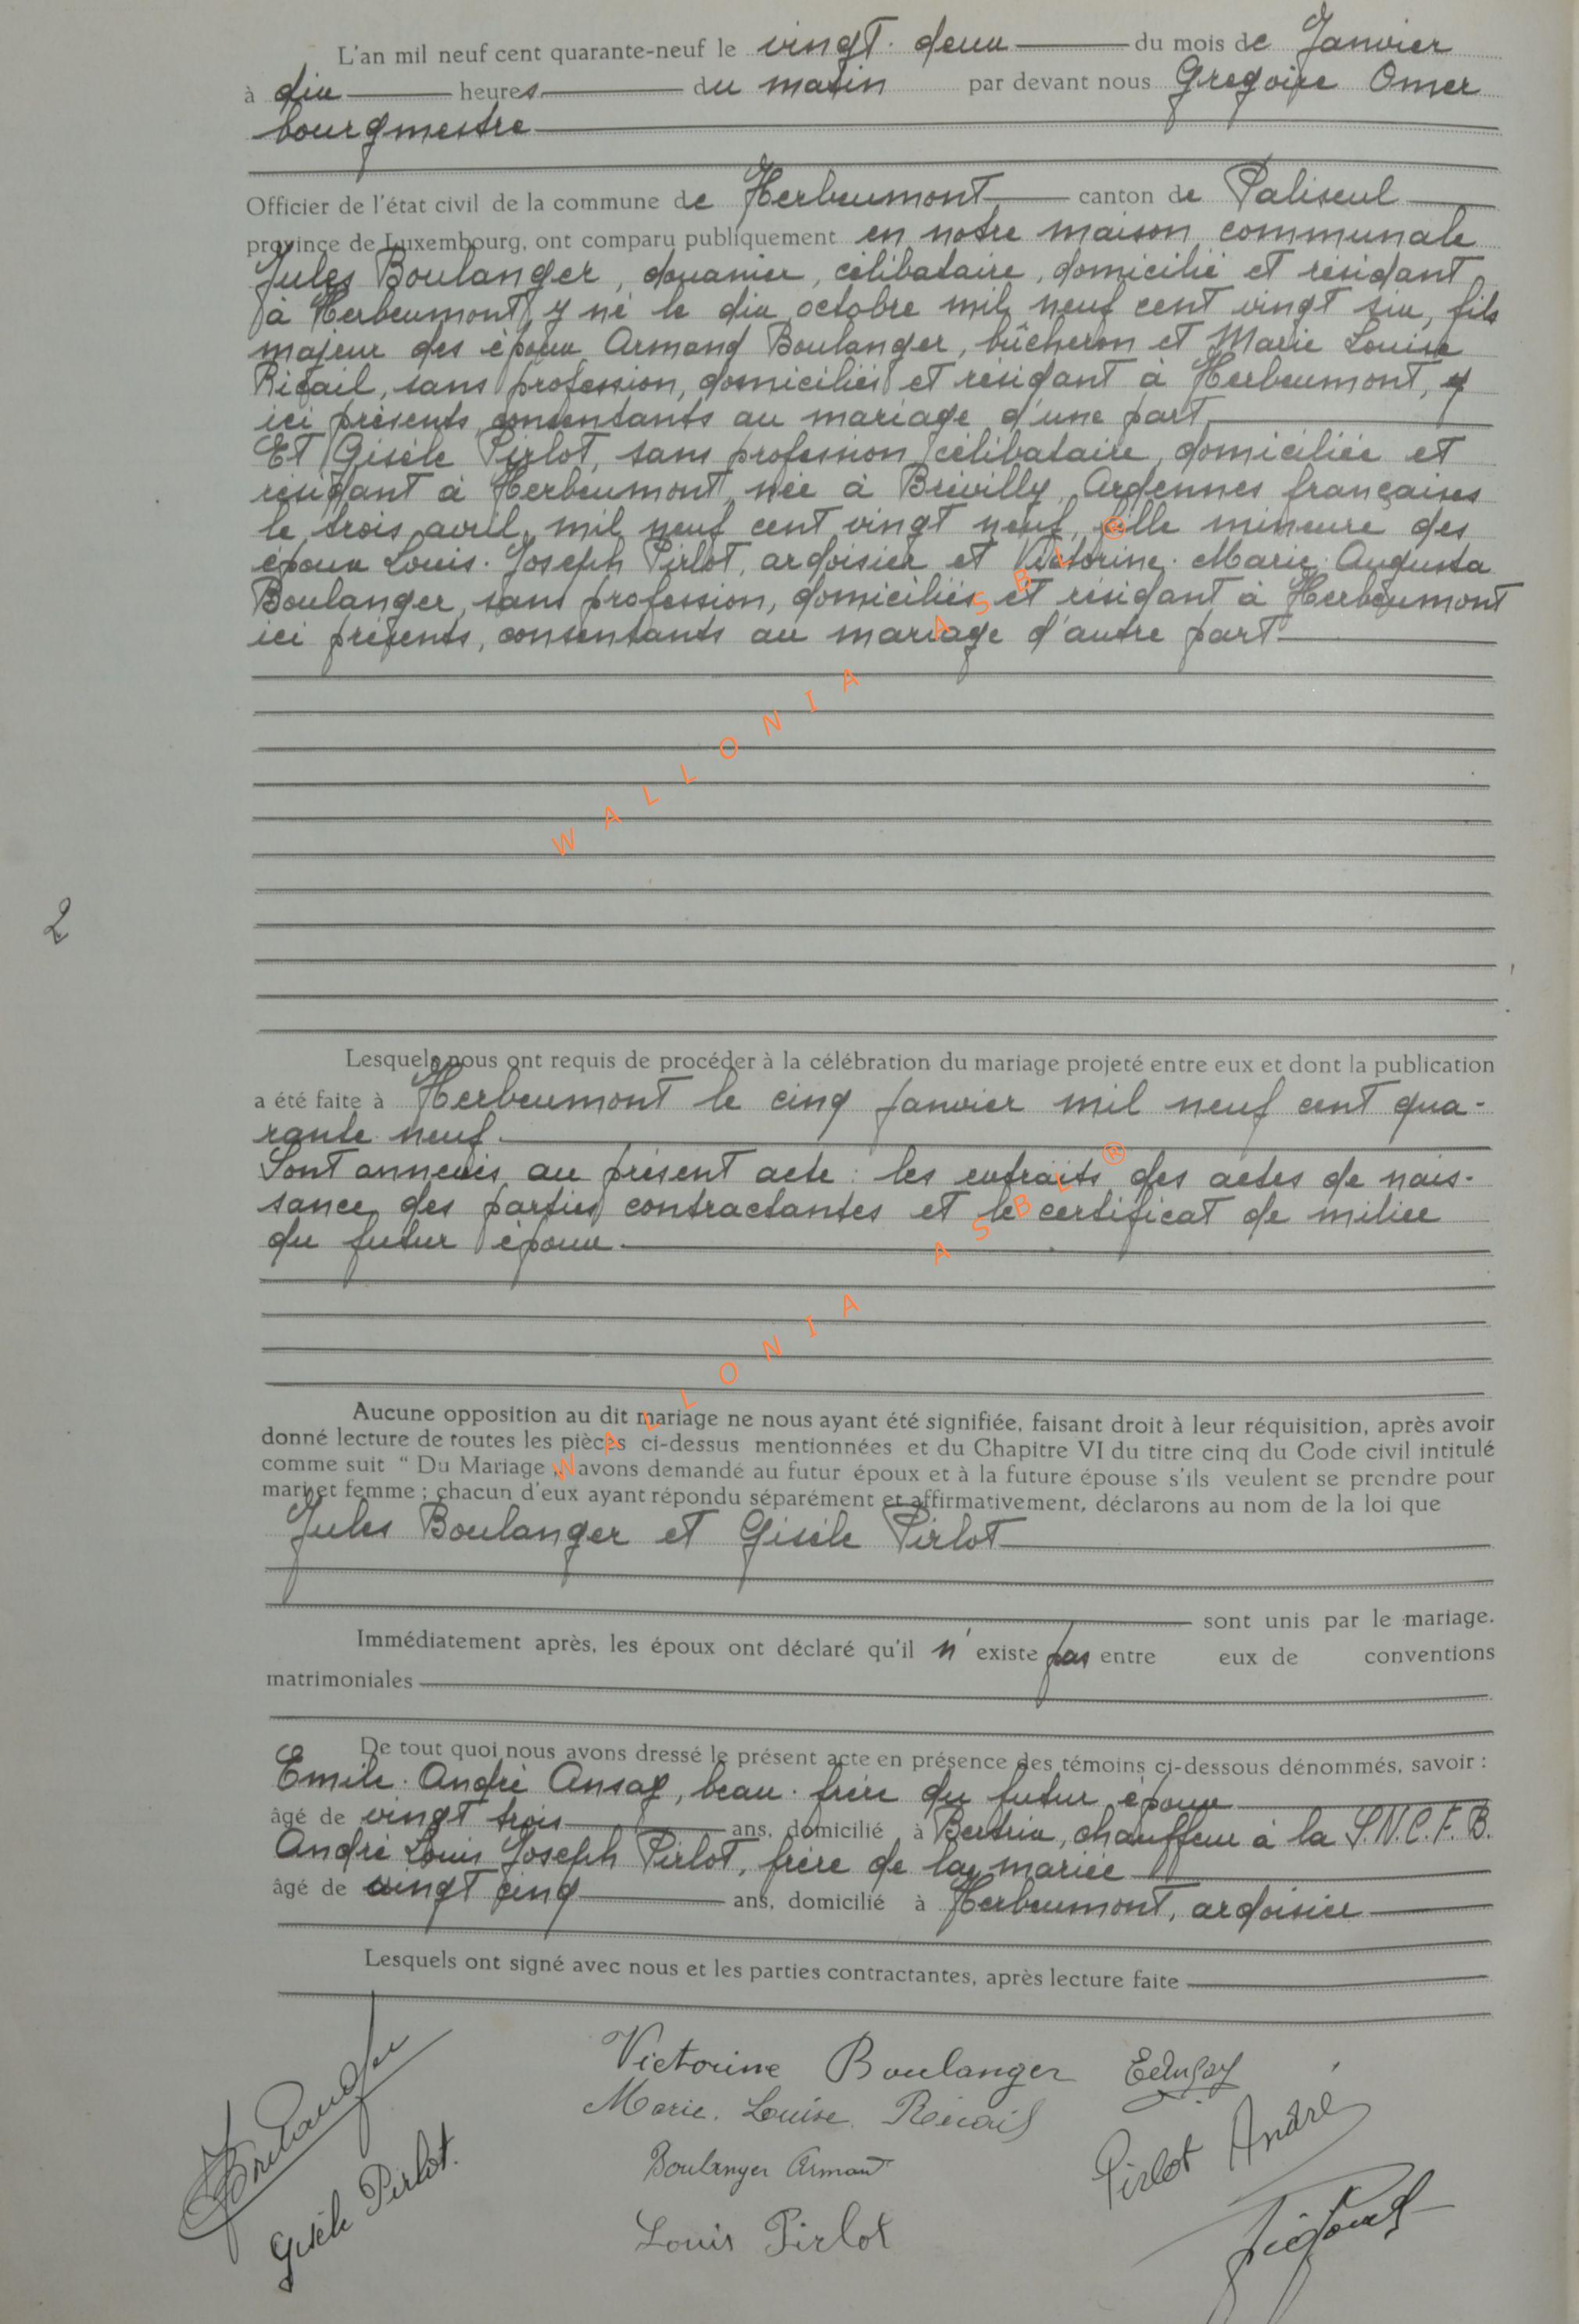 L'an mil neuf cent quarante-neuf le vingt-deux du mois de Janvier
à dix heures du matin par devant nous Grégoire Omer
bourgmestre
Officier de l'état civil de la commune de Herbeumont canton de Paliseul
province de Luxembourg, ont comparu publiquement en notre maison communale
Jules Boulanger, douanier, célibataire, domicilié et résidant
à Herbeumont, y né le dix octobre mil neuf cent vingt six, fils
majeur des époux Armand Boulanger, bûcheron et Marie Louise
sans profession, domiciliés et résidant à Herbeumont,
ici présents, consentants au mariage d'une part
Et Gisèle Pirlot, sans profession, célibataire, domiciliée et
résidant à Herbeumont, née à Brévilly, Ardennes françaises
le trois avril, mil neuf cent vingt neuf, fille mineure des
époux Louis-Joseph Pirlot, ardoisier et Victorine-Marie-Augusta
Boulanger, sans profession, domiciliés et résidant à Herbeumont
ici présents, consentants au mariage d'autre part.
WALLONIA ASBL ®
2
Lesquels nous ont requis de procéder à la célébration du mariage projeté entre eux et dont la publication
a été faite à Herbeumont le cinq janvier mil neuf cent qua-
rante neuf.
Sont annexés au présent acte : les extraits des actes de nais-
sance des parties contractantes et le certificat de milice
du futur époux.
WALLONIA ASBL ®
Aucune opposition au dit mariage ne nous ayant été signifiée, faisant droit à leur réquisition, après avoir
donné lecture de toutes les pièces ci-dessus mentionnées et du Chapitre VI du titre cinq du Code civil intitulé
comme suit “ Du Mariage „ avons demandé au futur époux et à la future épouse s'ils veulent se prendre pour
mari et femme ; chacun d'eux ayant répondu séparément et affirmativement, déclarons au nom de la loi que
Jules Boulanger et Gisèle Pirlot
sont unis par le mariage.
Immédiatement après, les époux ont déclaré qu'il n'existe pas entre eux de conventions
matrimoniales
De tout quoi nous avons dressé le présent acte en présence des témoins ci-dessous dénommés, savoir :
Emile-André Ansay, beau-frère du futur époux
âgé de vingt trois ans, domicilié à Bertrix, chauffeur à la S.N.C.F.B.
André Louis Joseph Pirlot, frère de la mariée
âgé de vingt cinq ans, domicilié à Herbeumont, ardoisier
Lesquels ont signé avec nous et les parties contractantes, après lecture faite
Victorine Boulanger
Marie-Louise
Boulanger Armand
Louis Pirlot
JBoulanger
Gisèle Pirlot.
EAnsay
Pirlot André